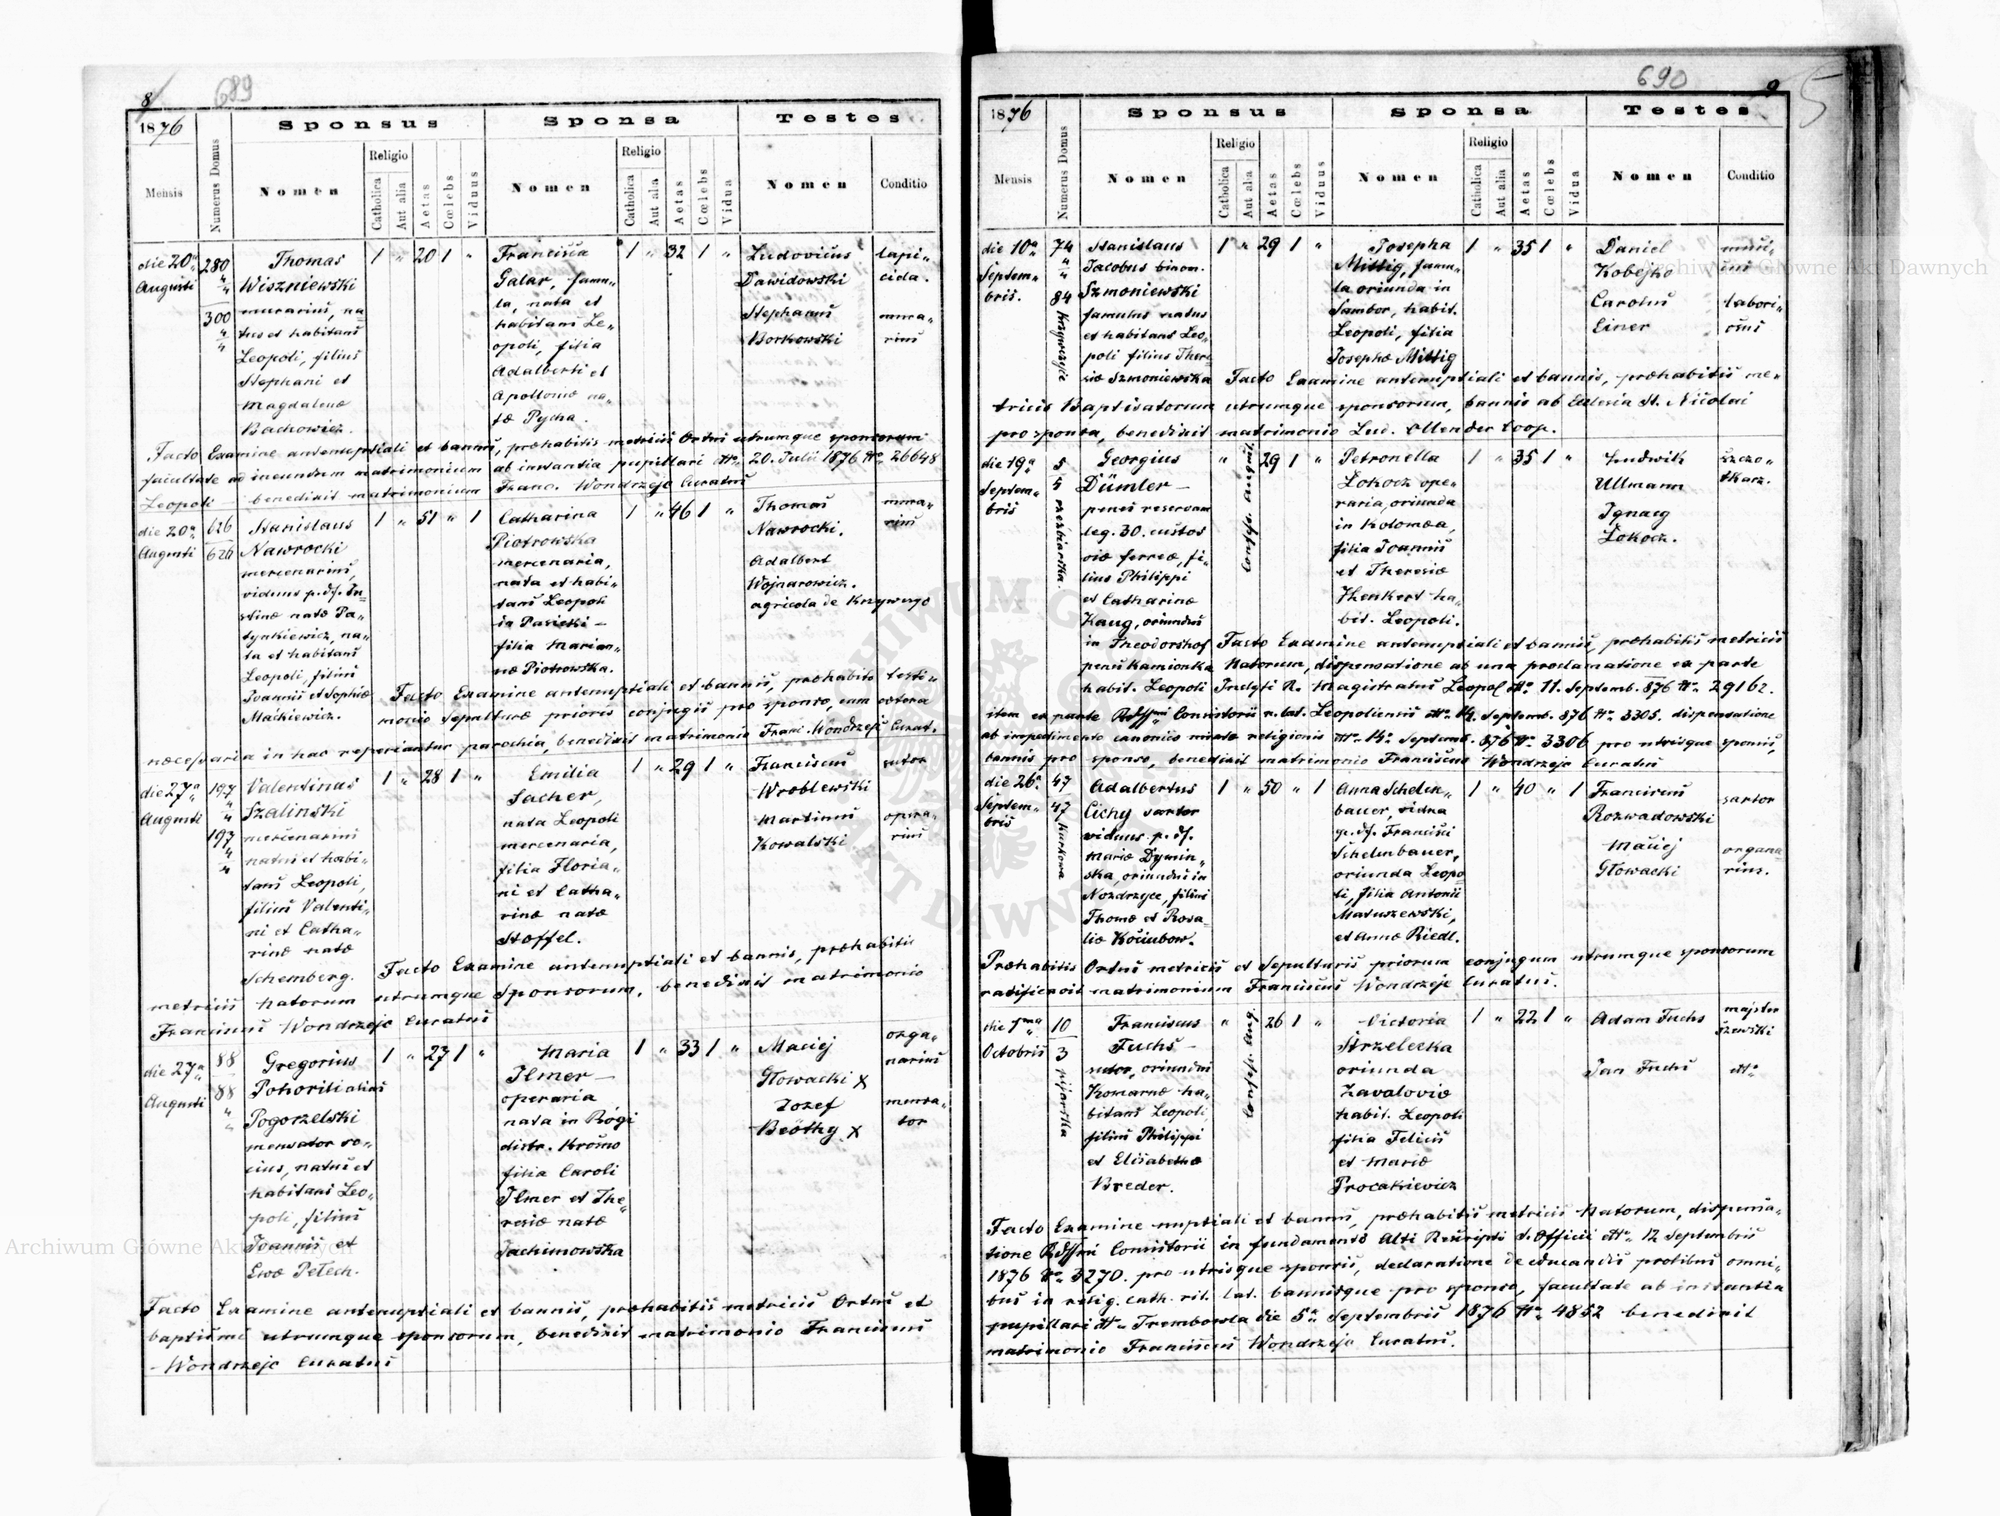 8 689
1876 Sponsus Sponsa Testes
Mensis Numerus Domus Nomen Religio Catholica Aut alia Aetas Cœlebs Viduus Nomen Religio Catholica Aut alia Aetas Cœlebs Vidua Nomen Conditio
die 20ª Augusti
280 300
Thomas
Wiszniewski
murarius, na=
tus et habitans
Leopoli, filius
Stephani et
Magdalenæ
Bachowicz.
1 " 20 1 "
Francisca
Galar, famu=
la, nata et
habitans Le=
opoli, filia
Adalberti et
Apolloniæ na=
tæ Pycha.
1 " 32 1 "
Ludovicus
Dawidowski
Stephanus
Borkowski
lapi=
cida.
mura=
rius
Facto Examine antenuptiali et bannis, præhabitis metricis Ortus utrumque sponsorum
facultate ad ineundum matrimonium ab instantia pupillari dto 20. Julii 1876 No 26648
Leopoli — benedixit matrimonium Franc. Wondrzejc Curatus
die 20ª
Augusti
626
626
Stanislaus
Nawrocki
mercenarius,
viduus p. df. Ju=
stinæ natæ Pa=
tynkiewicz, na=
tus et habitans
Leopoli, filius
Joannis et Sophiæ
Mackiewicz.
1 " 51 " 1
Catharina
Piotrowska
mercenaria,
nata et habi=
tans Leopoli
in Pasieki —
filia Marian=
næ Piotrowska.
1 " 46 1 "
Thomas
Nawrocki.
Adalbert
Wojnarowicz.
agricola de Krzywego
mura=
rius
Facto Examine antenuptiali et bannis, præhabito testi=
monio Sepulturæ prioris conjugis pro sponso, cum cetera
necessaria in hac reperiantur parochia, benedixit matrimonio Franc. Wondrzejc Curat.
die 27ª
Augusti
197
197
Valentinus
Szalinski
mercenarius
natus et habi=
tans Leopoli,
filius Valenti=
ni et Catha=
rinæ natæ
Schemberg.
1 " 28 1 "
Emilia
Sacher,
nata Leopoli
mercenaria,
filia Floria=
ni et Catha=
rinæ natæ
Stoffel.
1 " 29 1 "
Franciscus
Wroblewski
Martinus
Kowalski
sutor
opera=
rius
Facto Examine antenuptiali et bannis, præhabitis
metricis Natorum utrumque Sponsorum, benedixit matrimonio
Franciscus Wondrzejc Curatus
die 27ª
Augusti
88
88
Gregorius
Pohorili alias
Pogorzelski
mensator so=
cius, natus et
habitans Leo=
poli, filius
Joannis et
Evæ Pelech.
1 " 27 1 "
Maria
Ilmer —
operaria
nata in Rógi
distr. Krosno
filia Caroli
Ilmer et The=
resiæ natæ
Jachimowska
1 " 33 1 "
Maciej
Głowacki X
Jozef
Beöthy X
orga=
narius
mensa=
tor
Facto Examine antenuptiali et bannis, præhabitis metricis Ortus et
baptismi utrumque sponsorum, benedixit matrimonio Franciscus
— Wondrzejc Curatus
690 9 5
1876 Sponsus Sponsa Testes
Mensis Numerus Domus Nomen Religio Catholica Aut alia Aetas Cœlebs Viduus Nomen Religio Catholica Aut alia Aetas Cœlebs Vidua Nomen Conditio
die 10ª
Septem=
bris.
74
84
Stanislaus
Jacobus binom.
Szmoniewski
famulus natus
et habitans Leo=
poli filius There=
siæ Szmoniewska
1 " 29 1 "
Josepha
Mittig, famu=
la oriunda in
Sambor, habit.
Leopoli, filia
Josephæ Mittig
1 " 35 1 "
Daniel
Kobejko
Carolus
Einer
labori=
osus
Facto Examine antenuptiali et bannis, præhabitis me=
tricis Baptisatorum utrumque sponsorum, bannis ab Eclesia St. Nicolai
pro sponsa, benedixit matrimonio Lud. Ollender Coop.
die 19ª
Septem=
bris
5
5
Georgius
Dümler —
penes reservam
leg. 30. custos
viæ ferreæ, fi=
lius Philippi
et Catharinæ
Kaug, oriundus
in Theodorshof
penes Kamionka
habit. Leopoli
" Confess. august. 29 1 "
Petronella
Łokocz ope=
raria, oriunda
in Kolomæa,
filia Joannis
et Theresiæ
Henkert ha=
bit. Leopoli.
1 " 35 1 "
Ludwik
Ullmann
Ignacy
Łokocz.
szczo=
tkarz.
Facto Examine antenuptiali et bannis, præhabitis metricis
Natorum, dispensatione ab una proclamatione ex parte
Inclyti R. Magistratus Leopol dto 11. Septemb. 876 No 29162.
item ex parte Rdssmi Consistorii r. lat. Leopoliensis dto 14. Septemb. 876 No 3305. dispensatione
ab impedimento canonico mixtæ religionis dto 14. Septemb. 876 No 3306 pro utrisque sponsis,
bannis pro sponso, benedixit matrimonio Franciscus Wondrzejc Curatus
die 26ª
Septem=
bris
47
47 Kurkowa
Adalbertus
Cichy sartor
viduus p. df.
Mariæ Dymin=
ska, oriundus in
Nozdrzyce, filius
Thomæ et Rosa=
liæ Kociubow.
1 " 50 " 1
Anna Schelen=
bauer, vidua
p. df. Francisci
Schelenbauer,
oriunda Leopo
li, filia Antonii
Matuszewski,
et Annæ Riedl.
1 " 40 " 1
Franciscus
Rozwadowski
Maciej
Głowacki
sartor
organa=
rius.
Præhabitis Ortus metricis et Sepulturis priorum conjugum utrumque sponsorum
ratificavit matrimonium Franciscus Wondrzejc Curatus.
die 1ma
Octobris
10
3 pijarska
Franciscus
Fuchs —
sutor, oriundus
Komarno ha=
bitans Leopoli
filius Philippi
et Elisabethæ
Breder.
" Confess. aug. 26 1 "
Victoria
Strzelecka
oriunda
Zavalovio
habit. Leopoli
filia Felicis
et Mariæ
Procakiewicz
1 " 22 1 "
Adam Fuchs
Jan Fuchs
majster
szewski
dto
Facto Examine nuptiali et bannis, præhabitis metricis Natorum, dispensa=
tione Rdssmi Consistorii in fundamento Alti Rescripti d. Officii dto 12 Septembris
1876 No 3270. pro utrisque sponsis, declaratione de educandis prolibus omni=
bus in relig. cath. rit. lat. bannisque pro sponso, facultate ab instantia
pupillari dto Trembowla die 5ª Septembris 1876 No 4852 benedixit
matrimonio Franciscus Wondrzejc Curatus.
Archiwum Główne Akt Dawnych
Archiwum Główne Akt Dawnych
ARCHIWUM GŁÓWNE AKT DAWNYCH